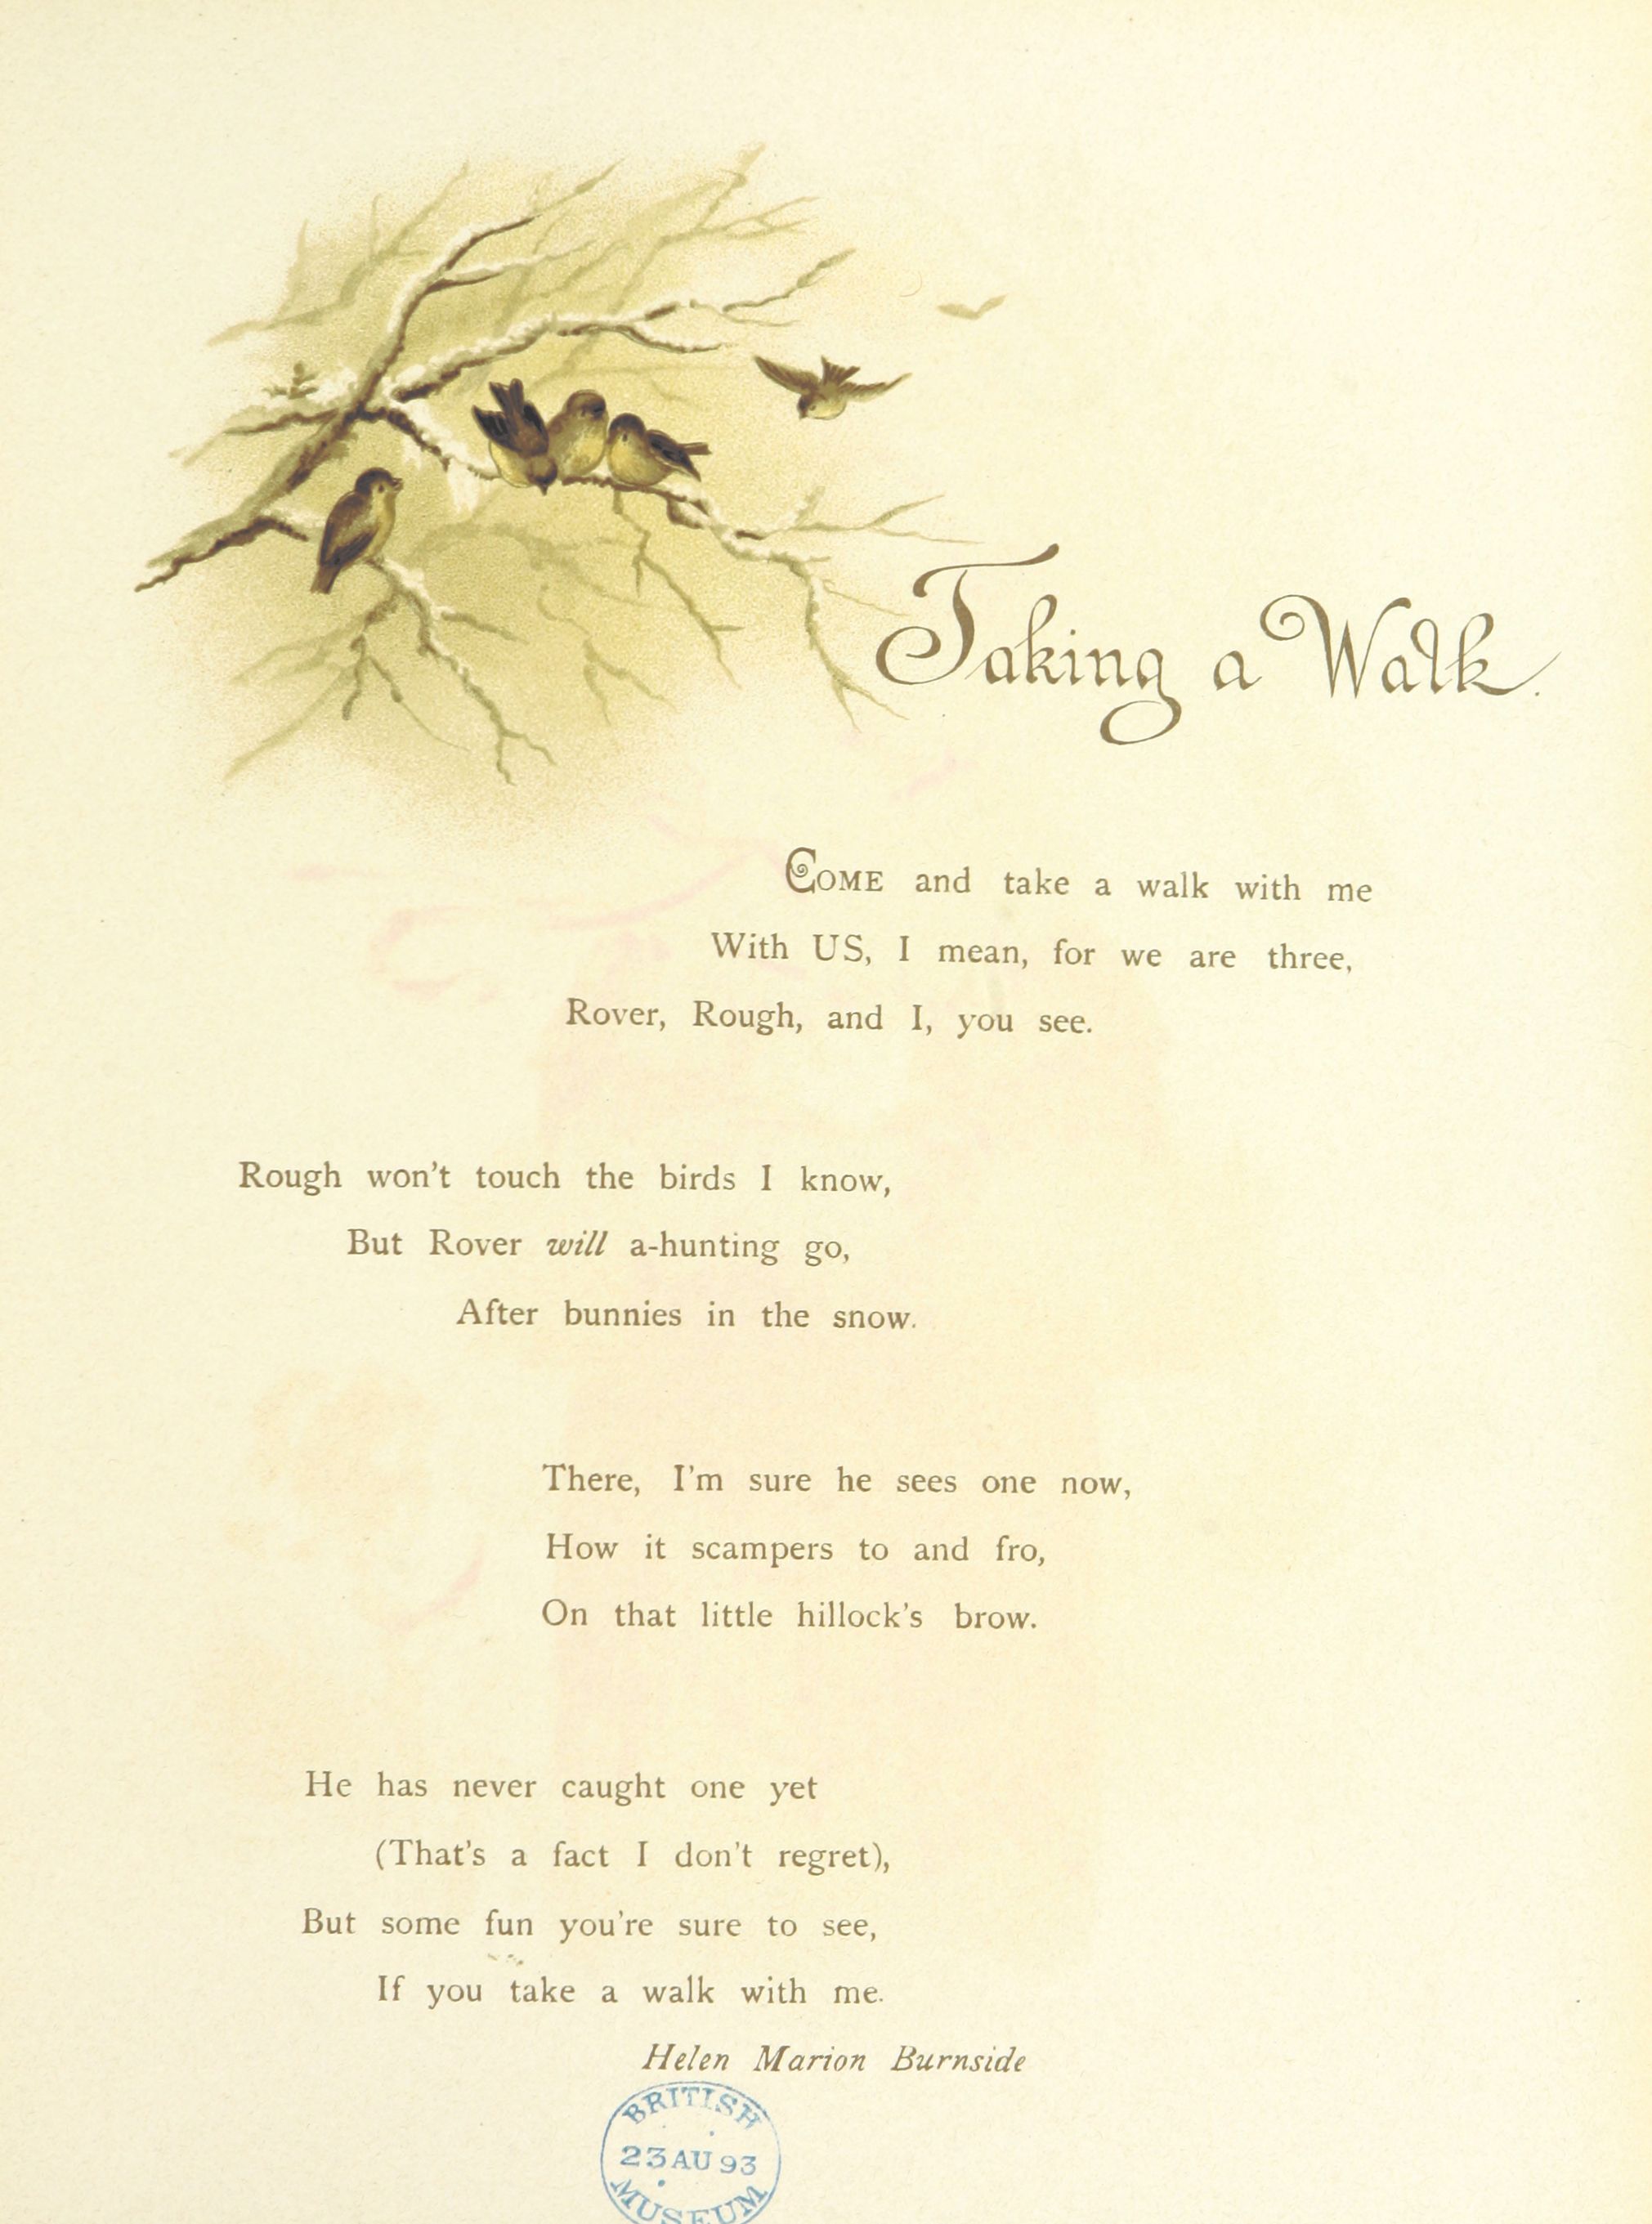 Taking a Walk.
COME and take a walk with me
With US, I mean, for we are three,
Rover, Rough, and I, you see.
Rough won't touch the birds I know,
But Rover will a-hunting go,
After bunnies in the snow.
There, I'm sure he sees one now,
How it scampers to and fro,
On that little hillock's brow.
He has never caught one yet
(That's a fact I don't regret),
But some fun you're sure to see,
If you take a walk with me.
Helen Marion Burnside
BRITISH
23 AU 93
MUSEUM